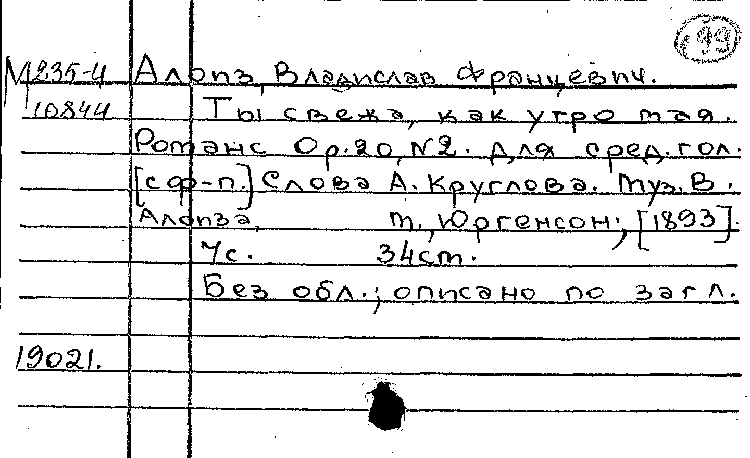 99
M 235-4 Алоиз, Владислав Францевич.
10844 Ты свежа, как утро мая.
Романс Op.20, N2. Для сред. гол.
[с ф-п.] Слова А. Круглова. Муз. В.
Алоиза, М., Юргенсон, [1893].
7с. 34cm.
Без обл.; описано по загл.
19021.